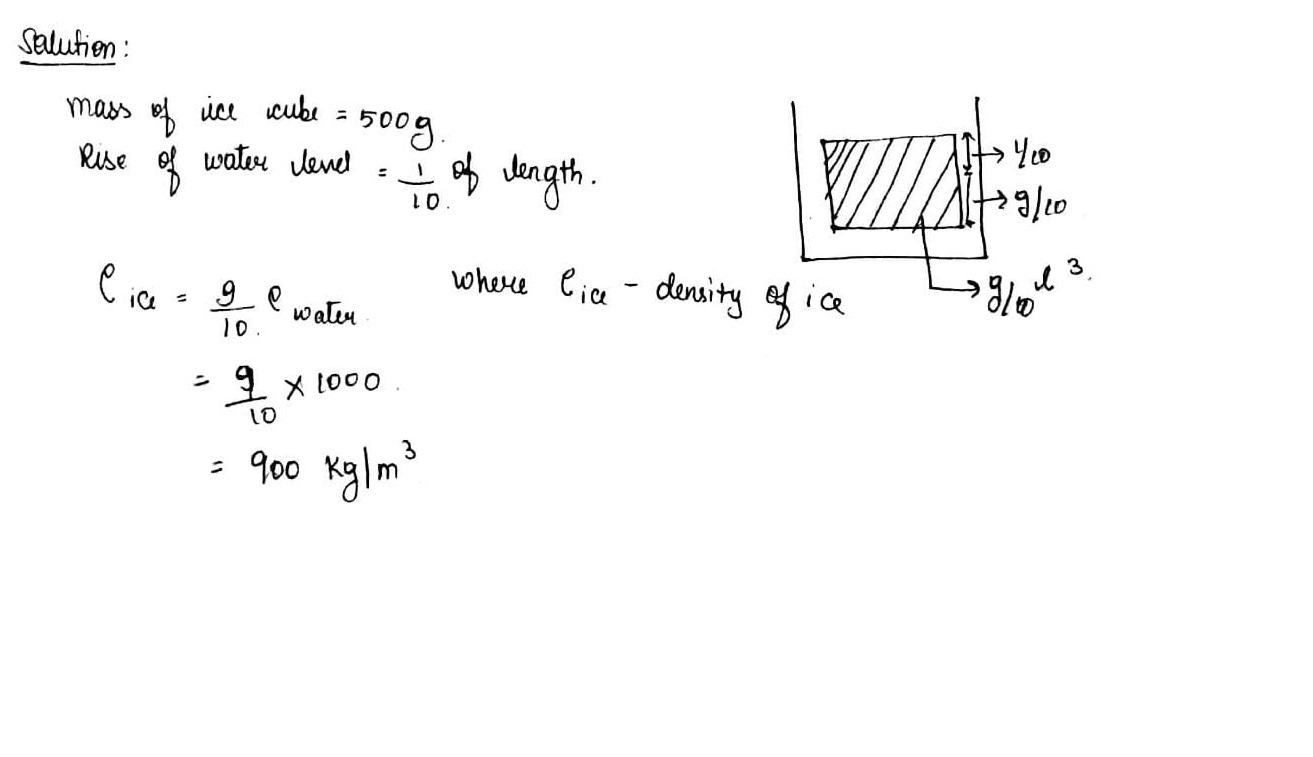 Solution:
mass of ice cube = 500g.
Rise of water level = 1/10. of length.
1/10
9/10
9/10 l³.
ρ ice = 9/10. ρ water. where ρ ice - density of ice
= 9/10 × 1000.
= 900 kg/m³